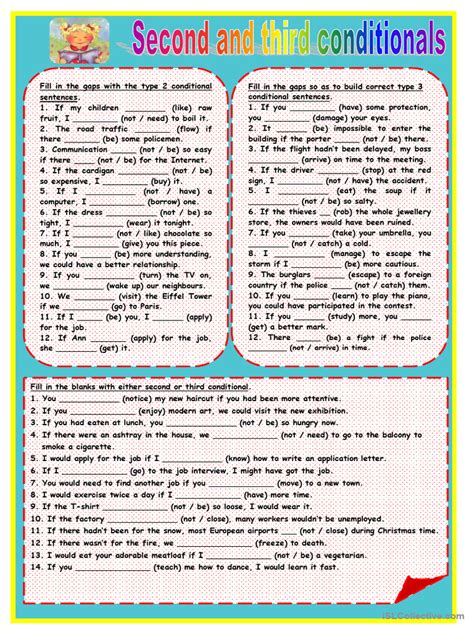 Second and third conditionals
Fill in the gaps with the type 2 conditional
sentences.
1. If my children ________ (like) raw
fruit, I ______ (not / need) to boil it.
2. The road traffic ________ (flow) if
there ______ (be) some policemen.
3. Communication _____ (not / be) so easy
if there _____ (not / be) for the Internet.
4. If the cardigan _______ (not / be) so
so expensive, I ______ (buy) it.
5. If I ________ (not / have) a
computer, I ________ (borrow) one.
6. If the dress ________ (not / be) so
tight, I ________ (wear) it tonight.
7. If I _____ (not / like) chocolate so
much, I ______ (give) you this piece.
8. If you ______ (be) more understanding,
we could have a better relationship.
9. If you ________ (turn) the TV on,
we ________ (wake up) our neighbours.
10. We ________ (visit) the Eiffel Tower
if we ________ (go) to Paris.
11. If I _____ (be) you, I _____ (apply)
for the job.
12. If Ann _____ (apply) for the job,
she ________ (get) it.
Fill in the gaps so as to build correct type 3
conditional sentences.
1. If you ________ (have) some protection,
you ________ (damage) your eyes.
2. It ________ (be) impossible to enter the
building if the porter ______ (not / be) there.
3. If the flight hadn't been delayed, my boss
________ (arrive) on time to the meeting.
4. If the driver ________ (stop) at the red
sign, I ________ (not / have) the accident.
5. I ________ (eat) the soup if it
________ (not / be) so salty.
6. If the thieves __ (rob) the whole jewellery
store, the owners would have been ruined.
7. If you ______ (take) your umbrella, you
________ (not / catch) a cold.
8. I ________ (manage) to escape the
storm if I ________ (be) more cautious.
9. The burglars ______ (escape) to a foreign
country if the police ______ (not / catch) them.
10. If you ______ (learn) to play the piano,
you could have participated in the contest.
11. If you ______ (study) more, you ______
(get) a better mark.
12. There ______ (be) a fight if the police
________ (not / arrive) in time.
Fill in the blanks with either second or third conditional.
1. You ________ (notice) my new haircut if you had been more attentive.
2. If you ________ (enjoy) modern art, we could visit the new exhibition.
3. If you had eaten at lunch, you ________ (not / be) so hungry now.
4. If there were an ashtray in the house, we ________ (not / need) to go to the balcony to
smoke a cigarette.
5. I would apply for the job if I ________ (know) how to write an application letter.
6. If I ________ (go) to the job interview, I might have got the job.
7. You would need to find another job if you ________ (move) to a new town.
8. I would exercise twice a day if I ________ (have) more time.
9. If the T-shirt ________ (not / be) so loose, I would wear it.
10. If the factory ________ (not / close), many workers wouldn't be unemployed.
11. If there hadn't been for the snow, most European airports ___ (not / close) during Christmas time.
12. If there wasn't for the fire, we ________ (freeze) to death.
13. I would eat your adorable meatloaf if I ________ (not / be) a vegetarian.
14. If you ________ (teach) me how to dance, I would learn it fast.
iSLCollective.com